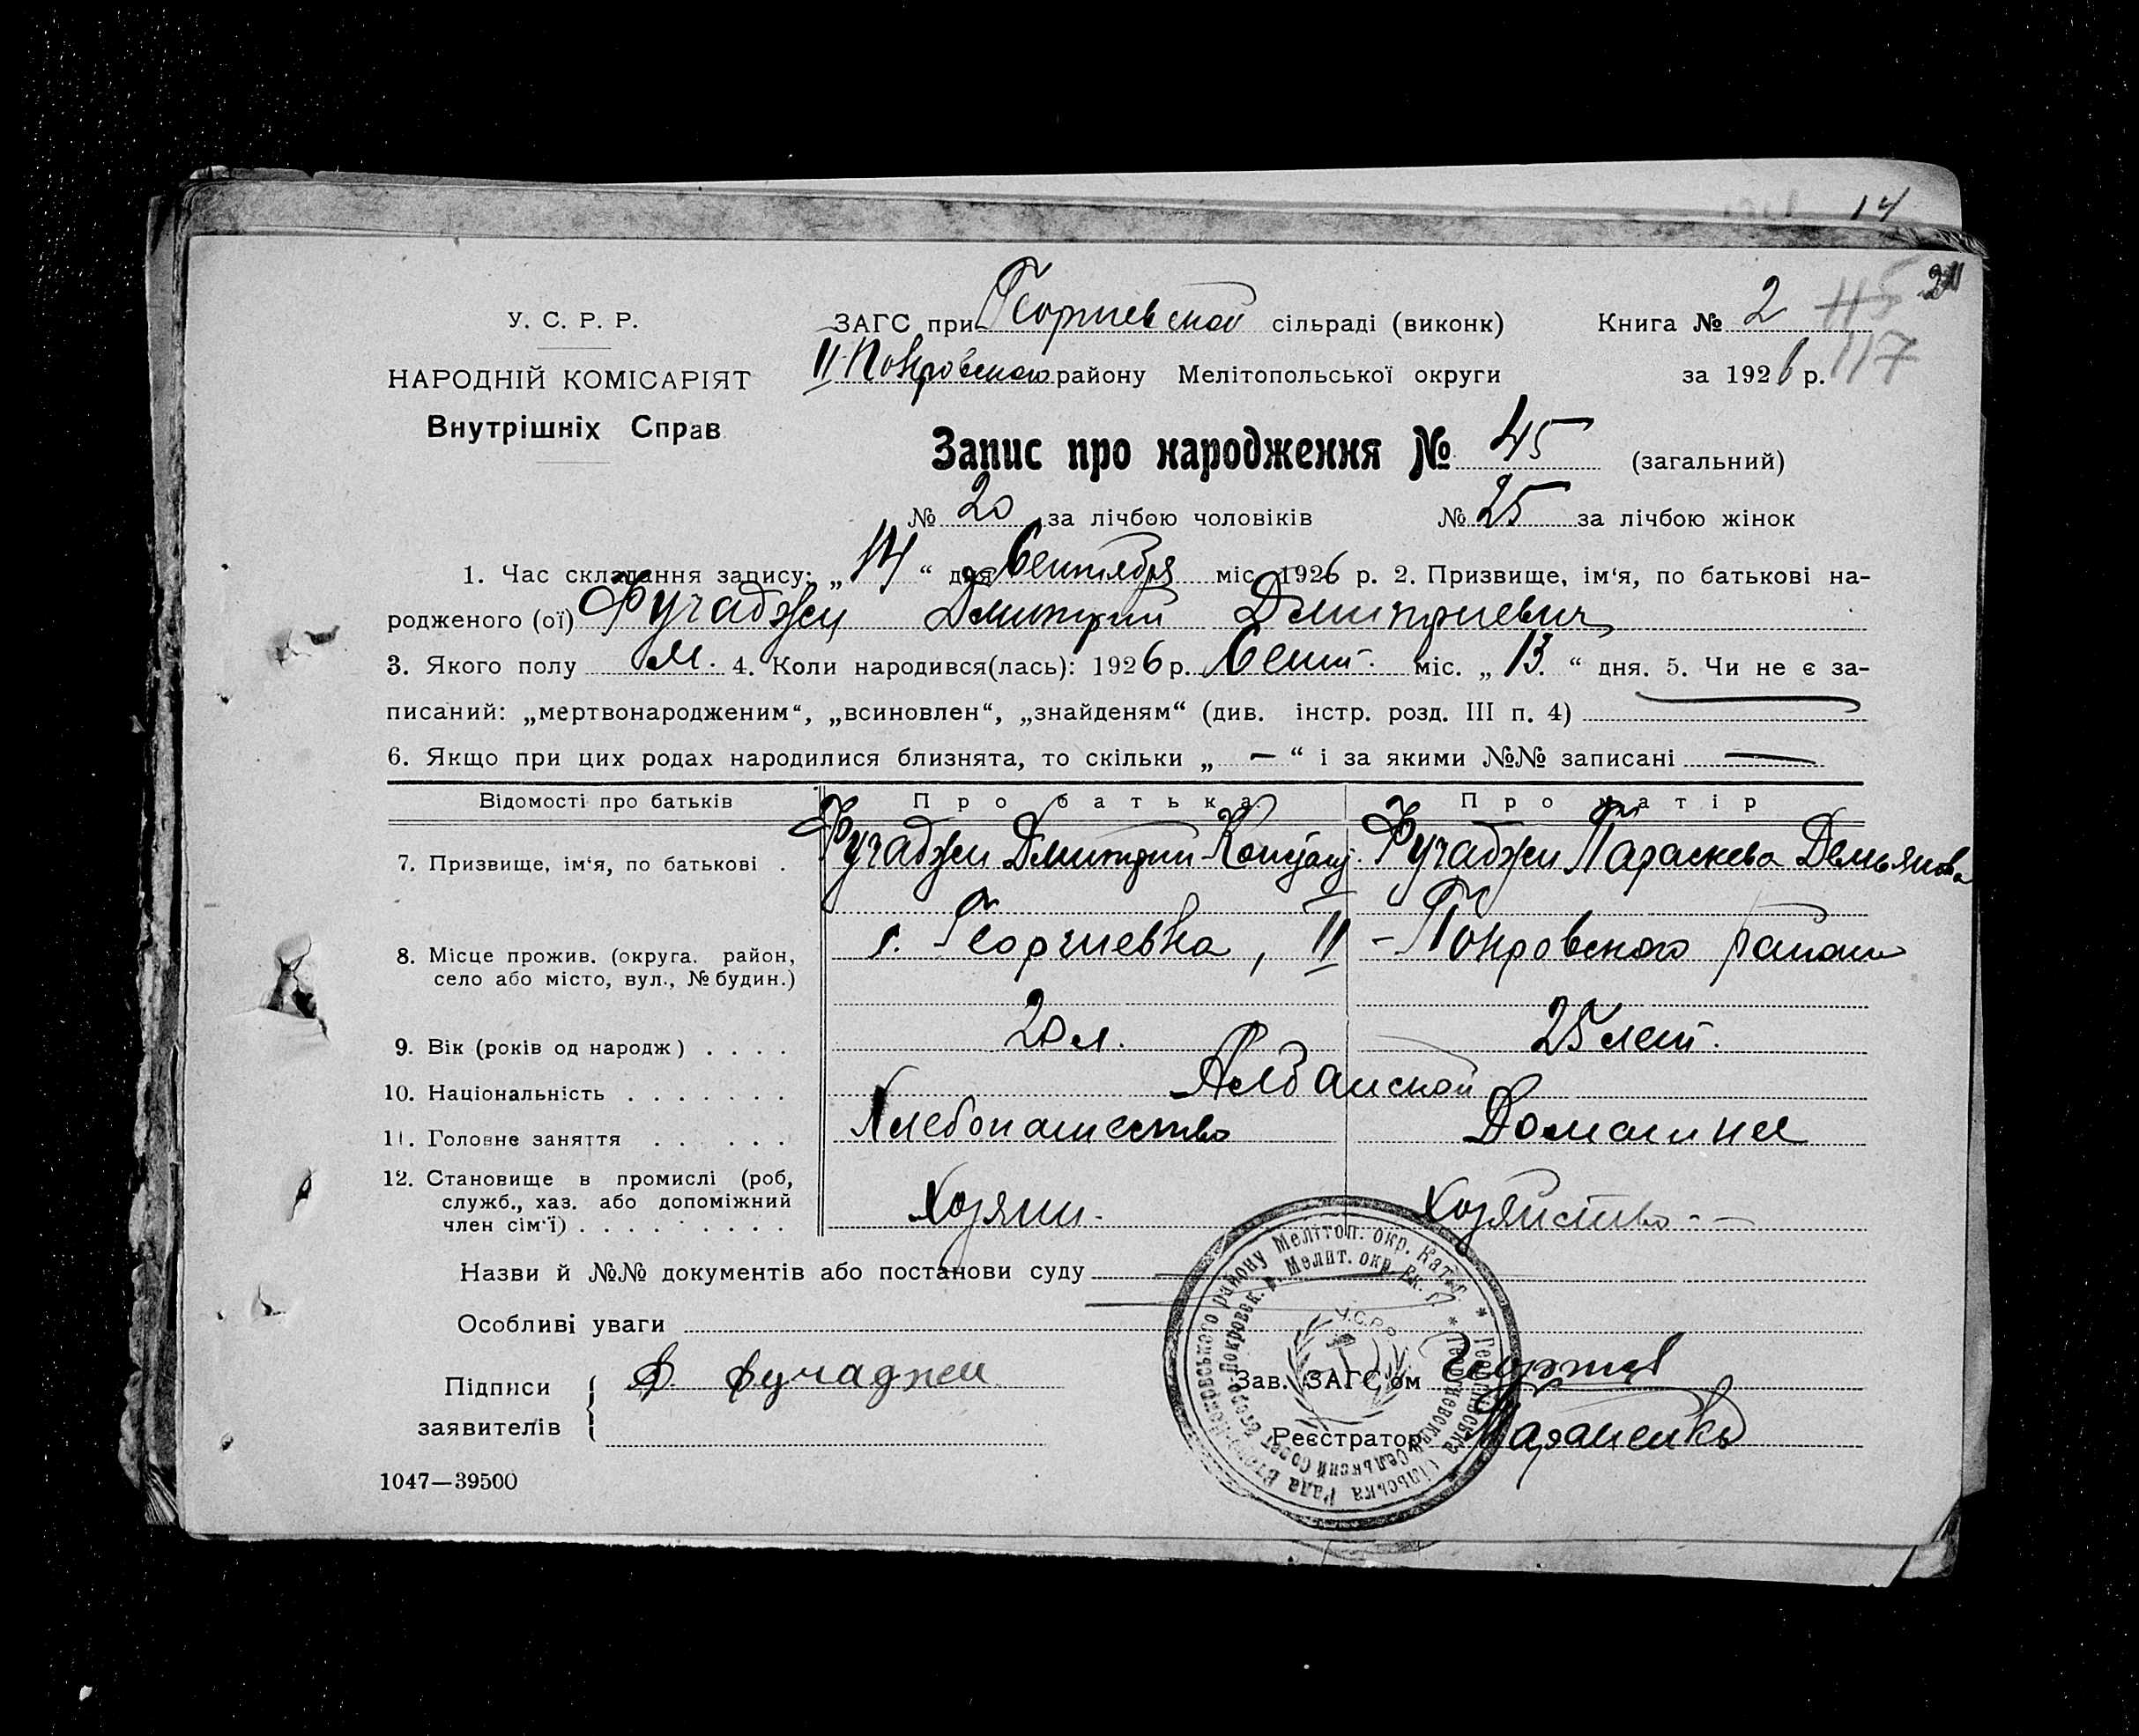 14
У. С. Р. Р.
НАРОДНІЙ КОМІСАРІЯТ
Внутрішніх Справ
ЗАГС при Георгиевской сільраді (виконк)
Книга № 2
115
117
21
II-Покровского району Мелітопольської округи
за 1926 р.
Запис про народження № 45 (загальний)
№ 20 за лічбою чоловіків № 25 за лічбою жінок
1. Час складання запису: „14“ дня Сентября міс. 1926 р. 2. Призвище, ім‘я, по батькові на-
родженого (ої) Фучаджи Дмитрий Дмитриевич
3. Якого полу М. 4. Коли народився(лась): 1926 р. Сент. міс. „13.“ дня. 5. Чи не є за-
писаний: „мертвонародженим“, „всиновлен“, „знайденям“ (див. інстр. розд. III п. 4)
6. Якщо при цих родах народилися близнята, то скільки „ — “ і за якими №№ записані —
Відомості про батьків Про батька Про матір
7. Призвище, ім‘я, по батькові . Фучаджи Дмитрий Фучаджи Параскева Демьянова
8. Місце прожив. (округа. район,
село або місто, вул., № будин.)
с. Георгиевка, II - Покровского района
9. Вік (років од народж) . . . . 20 л. 25 лет.
10. Національність . . . . . . . Албанской
11. Головне заняття . . . . . . Хлебопашество Домашнее
12. Становище в промислі (роб,
служб., хаз. або допоміжний
член сім‘ї) . . . . . . . . . Хозяин. Хозяйство - -
Назви й №№ документів або постанови суду
Особливі уваги
Підписи
заявителів
Д. Фучаджи
Зав. ЗАГС‘ом
Реєстратор Тараненко
Георгіївська Сільська Рада Второ-Покровського району Мелітоп. окр. Кат.
Георгиевский Сельский Совет Второ-Покровск. р. Мелит. окр.
У.С.Р.Р
1047—39500